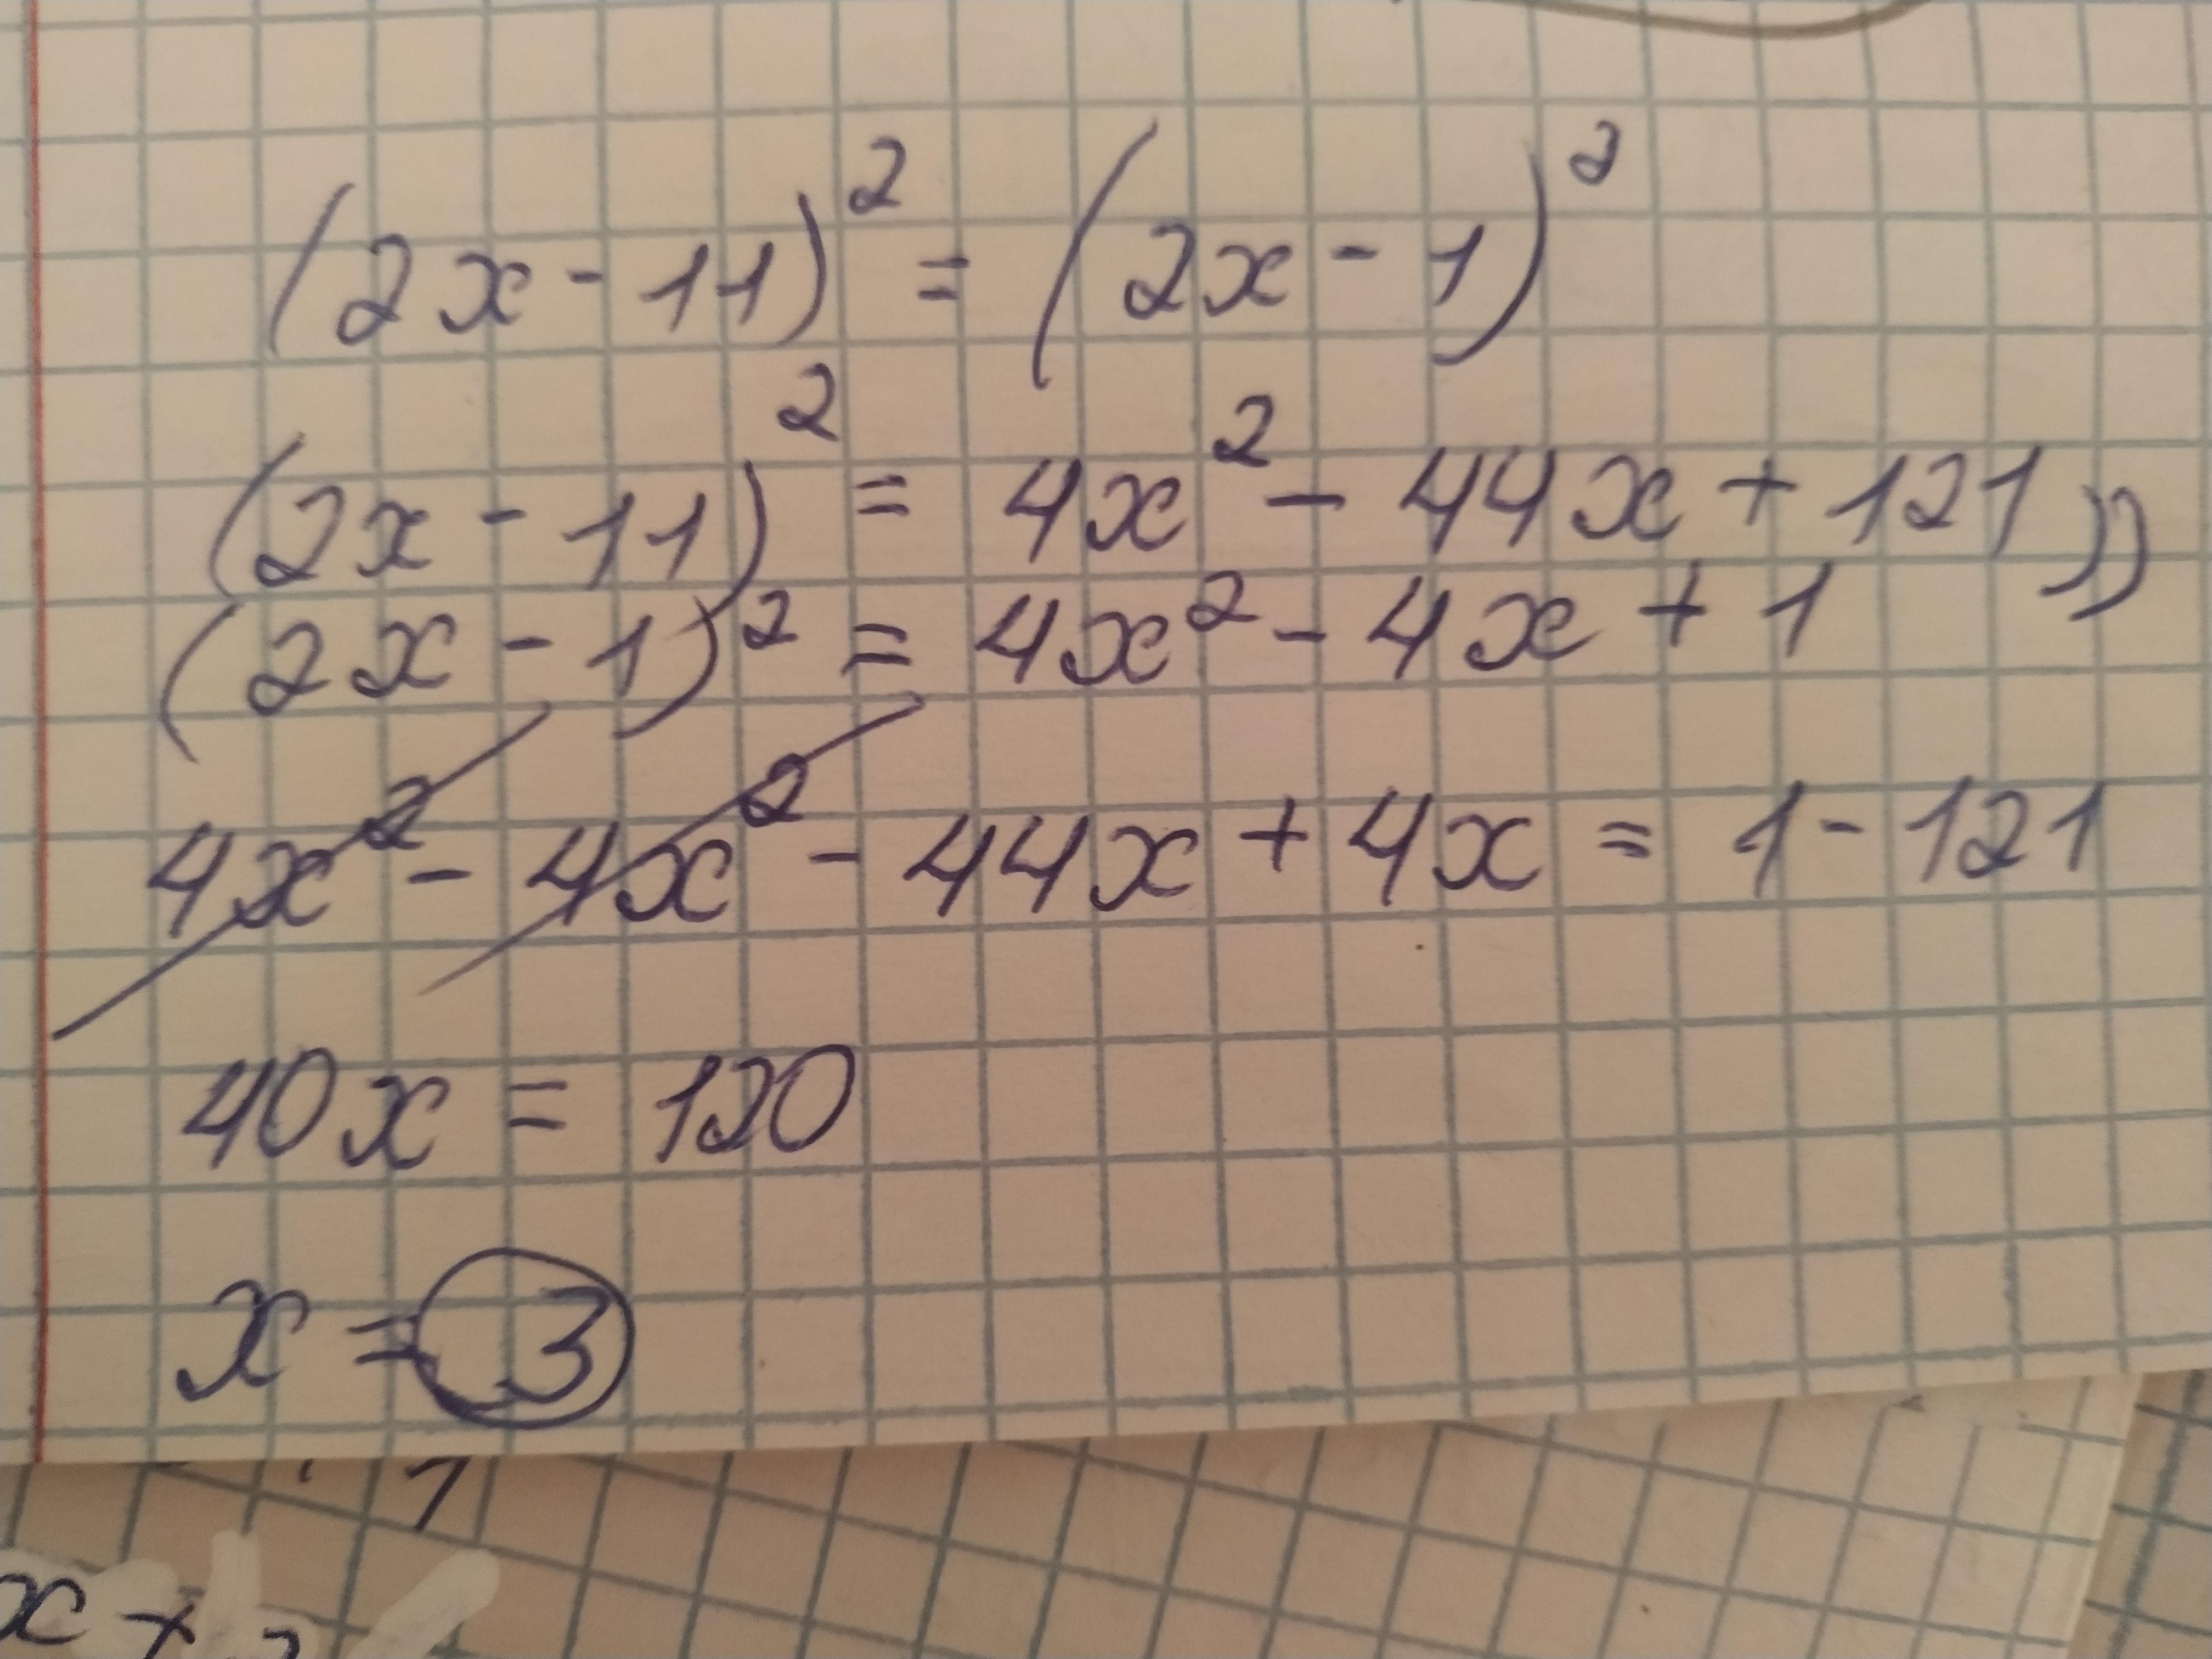 (2x - 11)² = (2x - 1)²
(2x - 11)² = 4x² - 44x + 121 ))
(2x - 1)² = 4x² - 4x + 1
4x² - 4x² - 44x + 4x = 1 - 121
40x = 120
x = 3
1
x +